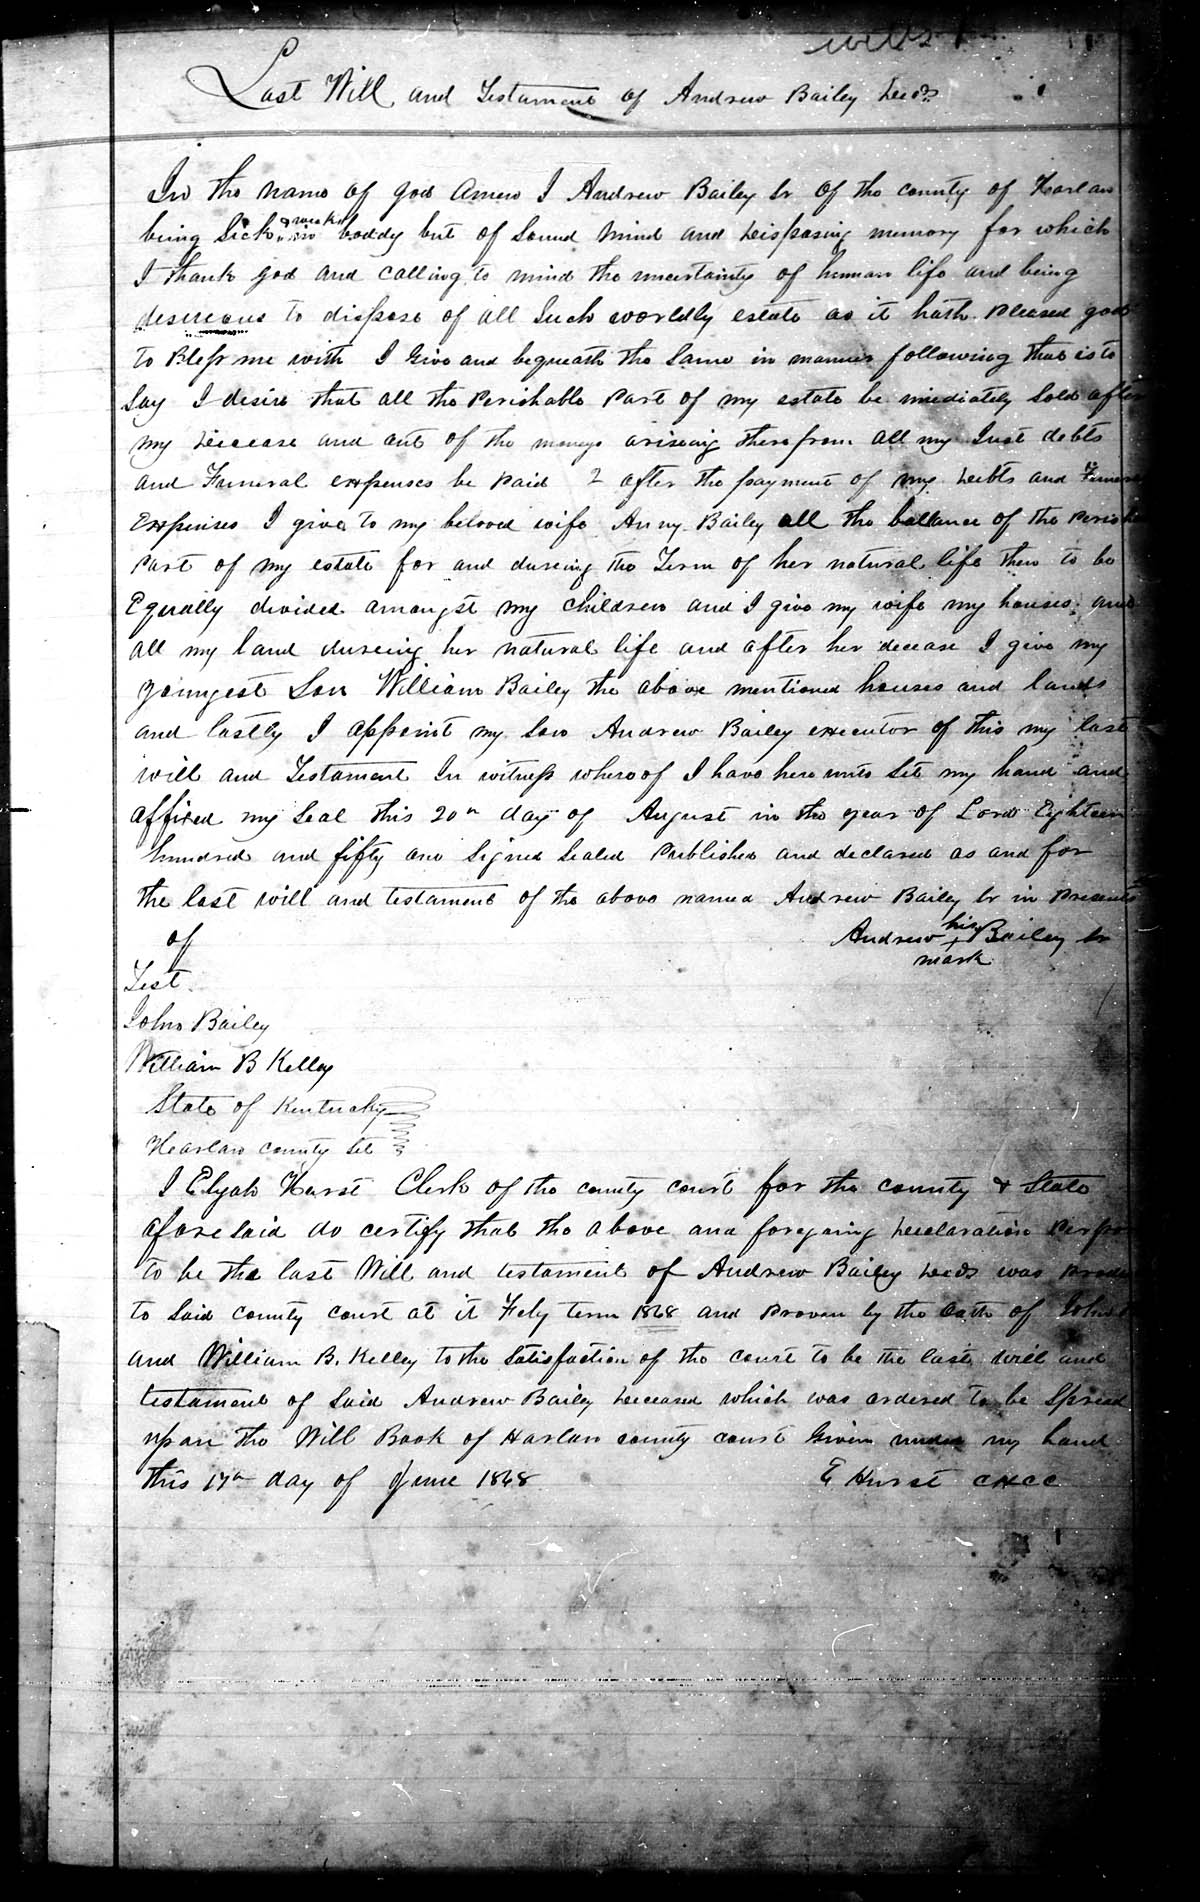 Wills
Last Will and Testament of Andrew Bailey Decd 1
In the name of god Amen I Andrew Bailey Sr of the county of Harlan
being Sick & weak in boddy but of Sound mind and Disposing memory for which
I thank god and calling to mind the uncertainty of human life and being
desireous to dispose of all Such worldly estate as it hath Pleased god
to Bless me with I Give and bequeath the Same in manner following that is to
Say I desire that all the Perishable Part of my estate be imediately Sold after
my Decease and out of the moneys ariseing therefrom all my Just debts
and Funeral expenses be Paid 2 after the payment of my Debts and Funeral
Expenses I give to my beloved wife Anny Bailey all the ballance of the
Part of my estate for and dureing the Term of her natural life then to be
Equally divided amongst my children and I give my wife my houses and
all my land dureing her natural life and after her decease I give my
youngest Son William Bailey the above mentioned houses and lands
and lastly I appoint my Son Andrew Bailey executor of this my last
will and Testament In witness whereof I have here unto Set my hand and
affixed my Seal this 20th day of August in the year of Lord Eighteen
hundred and fifty one Signed Sealed Published and declared as and for
the last will and testament of the above named Andrew Bailey Sr in Presents
of
Andrew his + mark Bailey Sr
Test
John Bailey
William B Kelley
State of Kentucky
Hearlan county Sct
I Elijah Hurst Clerk of the county court for the county & State
afore Said do certify that the above and foregoing Decclaration
to be the last Will and testament of Andrew Bailey Decd was
to Said county court at it Feby term 1868 and Proven by the Oath of John
and William B. Kelley to the Satisfaction of the court to be the last will and
testament of Said Andrew Bailey Deceased which was ordered to be Spread
upon the Will Book of Harlan county court Given under my hand
this 17th day of June 1868 E Hurst CHCC